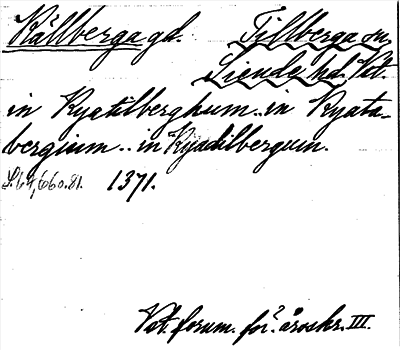 Källberga gd. Tillberga sn.
Siende hd. Vst.
in Kyatilberghum .. in Kyata-
bergium .. in Kyadilbergum.
1371.
Vst. fornm. för:s årsskr. III.